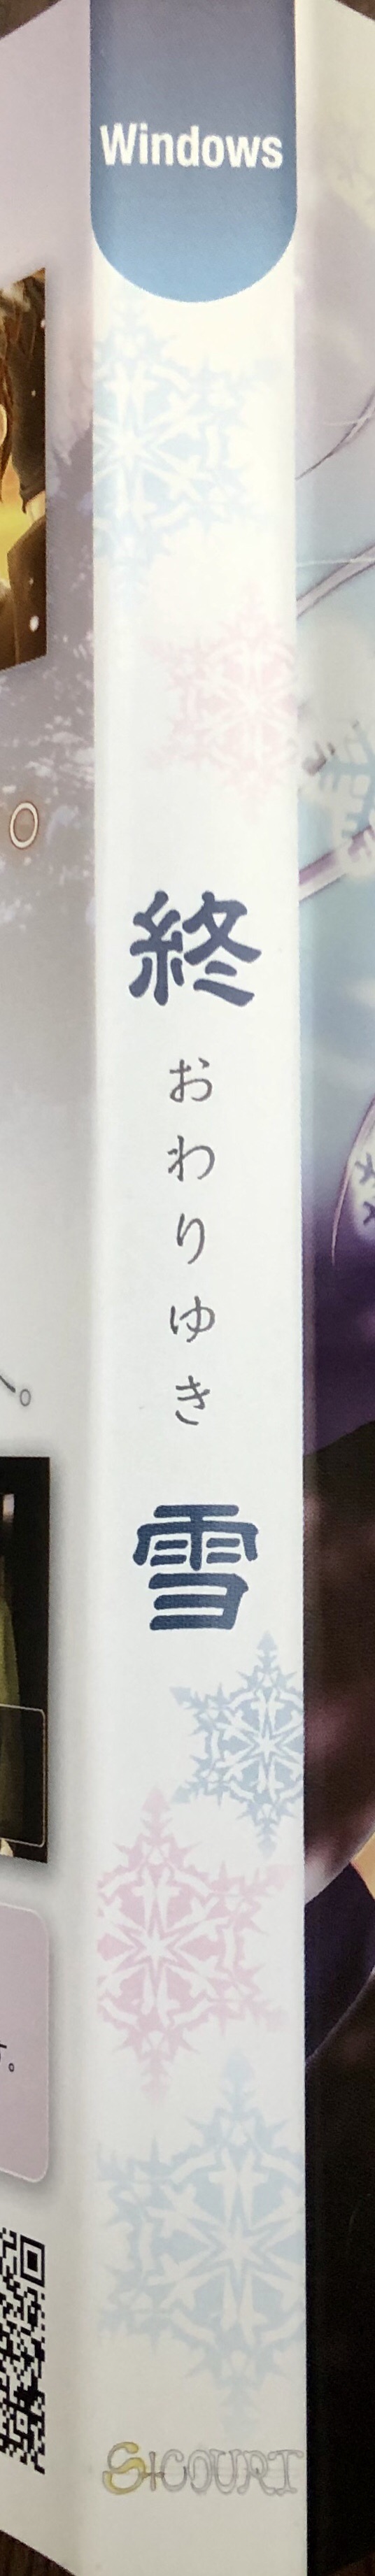 Windows
終
おわりゆき
雪
S+COURT